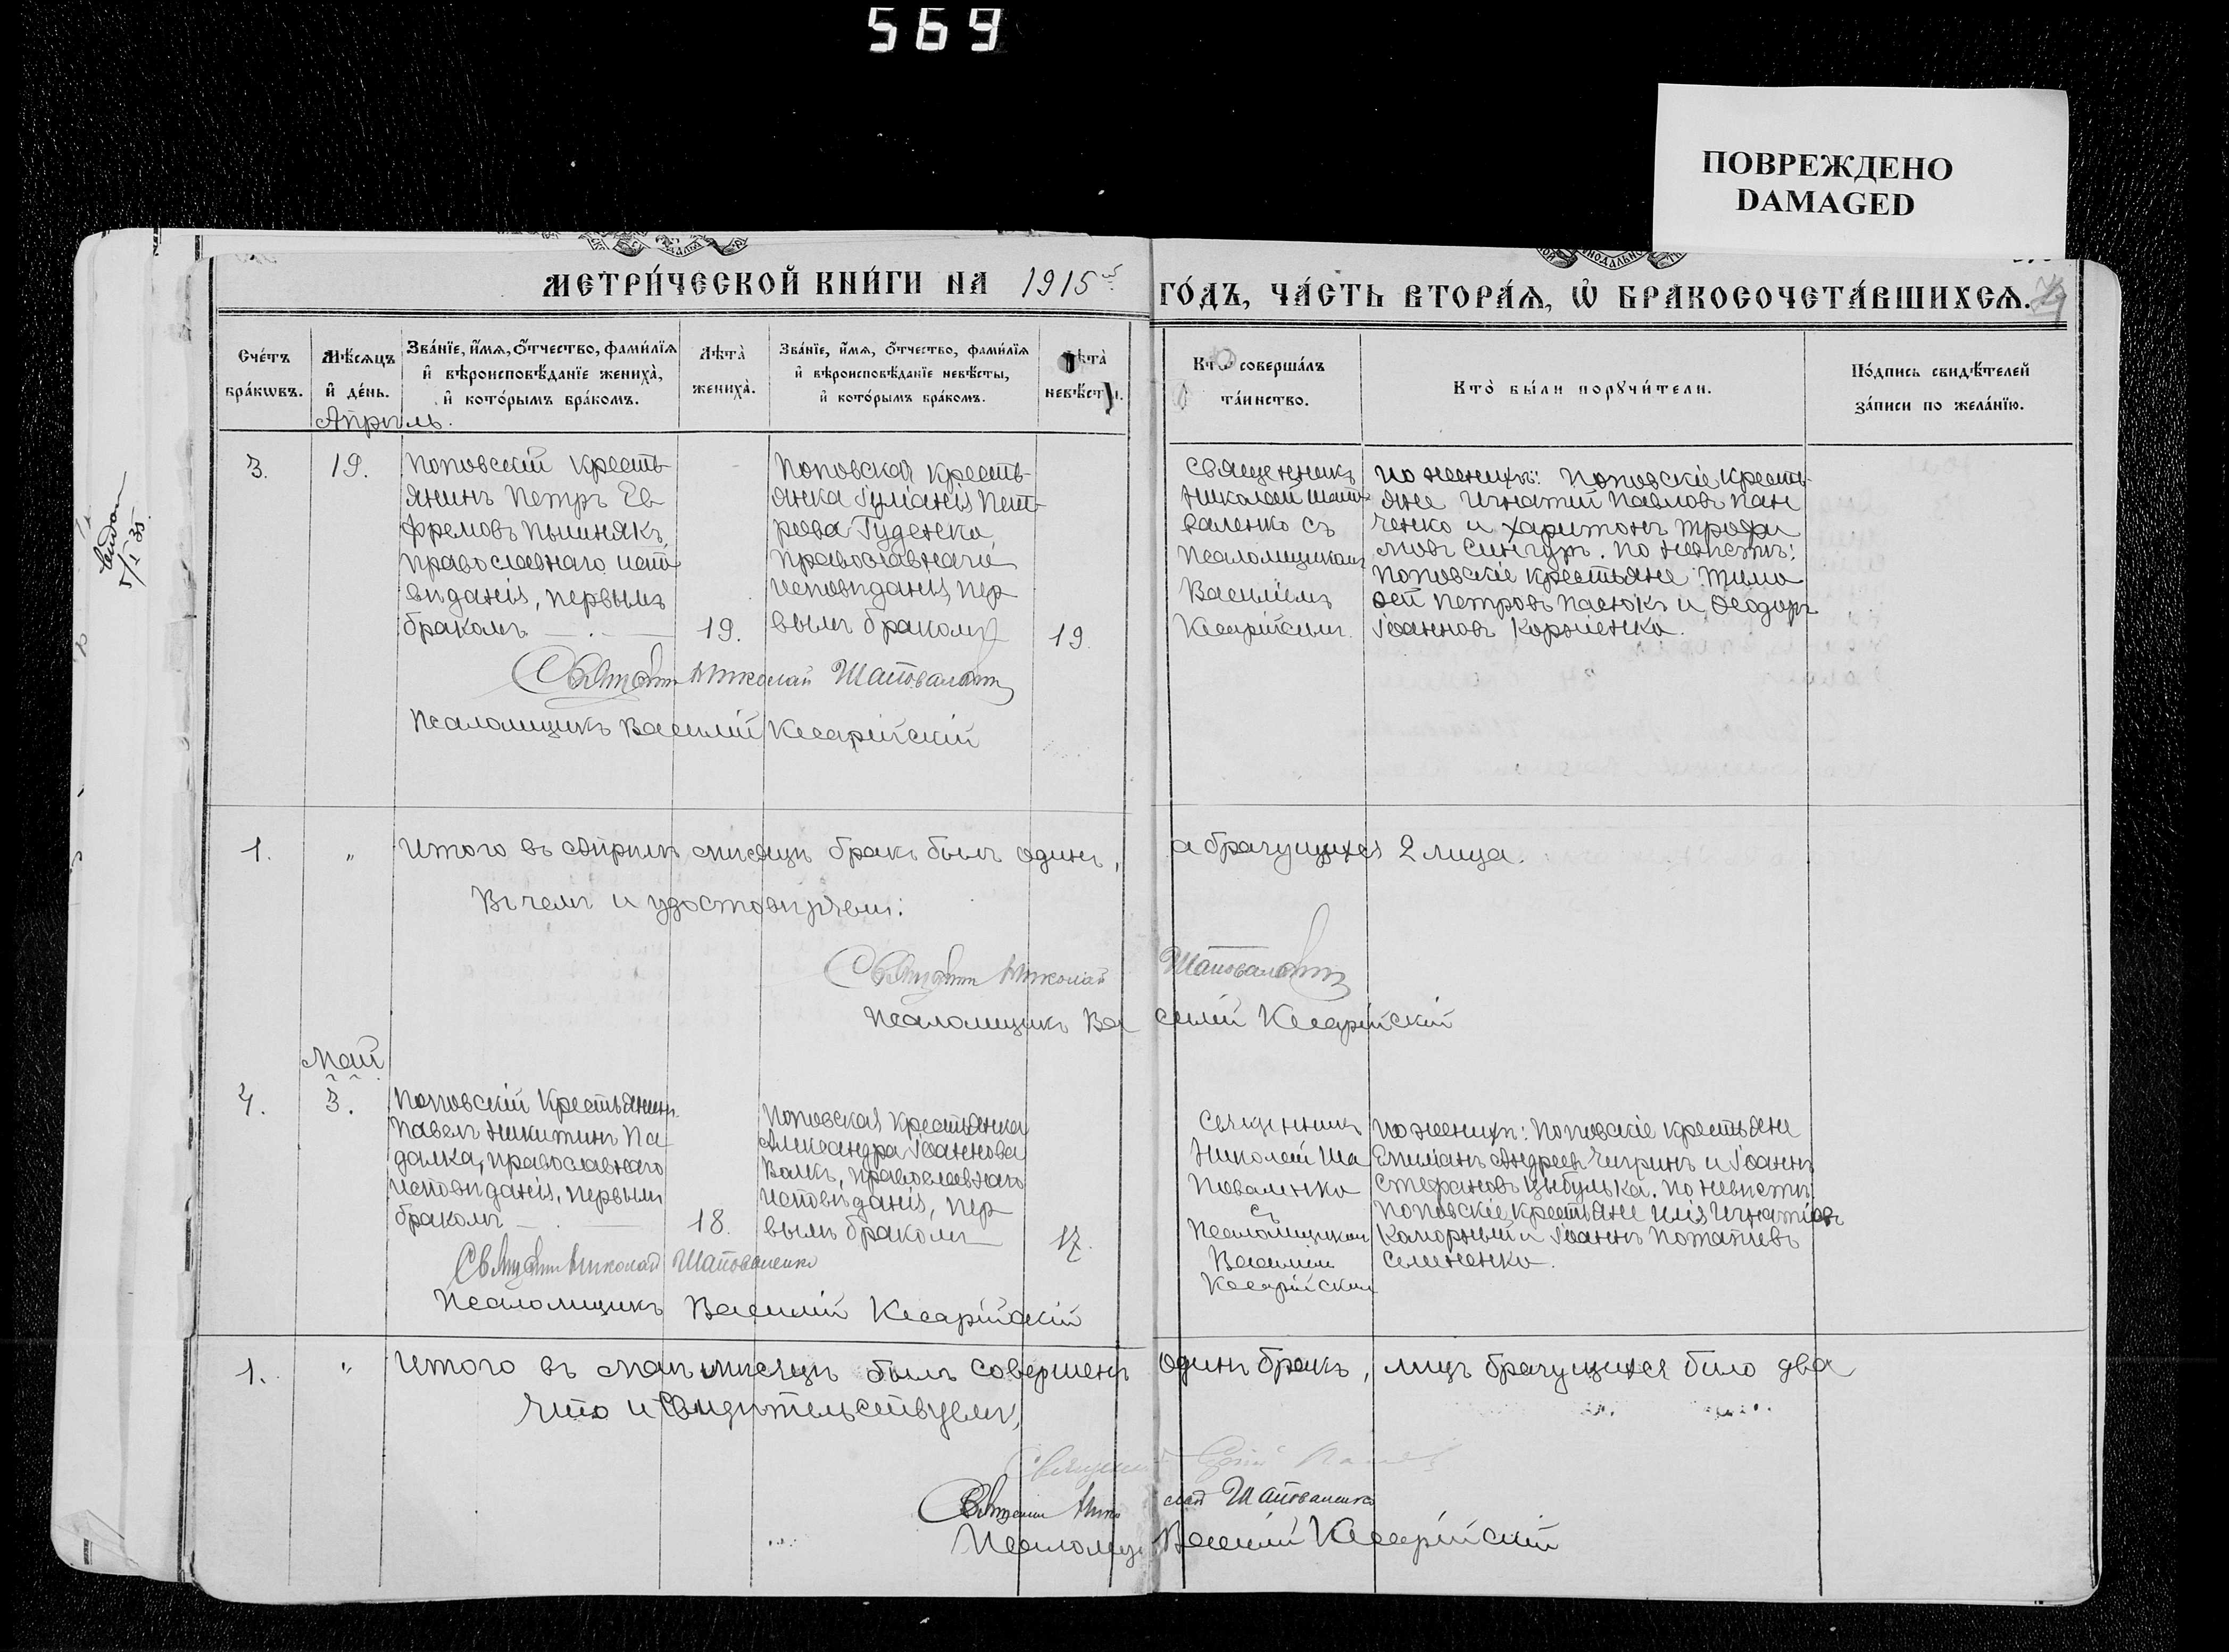 569
ПОВРЕЖДЕНО
DAMAGED
МЕТРИ́ЧЕСКОЙ КНИ́ГИ НА 1915й
ГО́ДЪ, ЧА́СТЬ ВТОРА́Ѧ, Ѡ҆ БРАКОСОЧЕТА́ВШИХСѦ.
Сче́тъ бра́кѡвъ.
Мѣ́сѧцъ и҆ де́нь.
Зва́нїе, и҆́мѧ, ѻ҆́тчество, фами́лїѧ
и҆ вѣроисповѣ́данїе жениха̀,
и҆ кото́рымъ бра́комъ.
Лѣ́та̀ жениха̀.
Зва́нїе, и҆́мѧ, ѻ҆́тчество, фами́лїѧ
и҆ вѣроисповѣ́данїе невѣ́сты,
и҆ кото́рымъ бра́комъ.
невѣ́сты.
Кто̀ соверша́лъ
та́инство.
Кто̀ бы́ли порꙋчи́тели.
По́дпись свидѣ́телей
за́писи по жела́нїю.
Апрѣль.
3.
19.
Поповскій кресть-
янинъ Петръ Ев-
фремовъ Пышнякъ,
православнаго испо-
вѣданія, первымъ
бракомъ
19.
Поповская кресть-
янка Іуліанія Пет-
рова Гуденко,
православнаго
исповѣданія, пер-
вымъ бракомъ
19
Священникъ
Николай Шапо-
валенко съ
Псаломщикомъ
Василіемъ
Кесарійскимъ.
По женихѣ: Поповскіе кресть-
яне Игнатій Павловъ Пан
ченко и Харитонъ Трофи
мовъ Сингуръ. По невѣстѣ:
Поповскіе крестьяне Тимо
ѳей Петровъ Пасюкъ и Ѳеодоръ
Іоанновъ Корніенко.
Николай Шаповаленко
Псаломщикъ Василій Кесарійскій
1. „ Итого въ Апрѣлѣ мѣсяцѣ бракъ былъ одинъ, а брачущихся 2 лица.
Въ чемъ и удостовѣряемъ:
Николай Шаповаленко
Псаломщикъ Василій Кесарійскій
Май
4.
3.
Поповскій Крестьянинъ
Павелъ Никитинъ Па
далка, православнаго
исповѣданія, первымъ
бракомъ
18.
Поповская крестьянка
Александра Іоаннова
Волкъ, православнаго
исповѣданія, пер
вымъ бракомъ
17.
Священникъ
Николай Ша
поваленко
съ
Псаломщикомъ
Василіем
Кесарійским
По женихѣ: Поповскіе крестьяне
Емиліанъ Андреевъ Чигринъ и Іоаннъ
Стефановъ Цыбулька. По невѣстѣ
Поповскіе крестьяне Илія Игнатіевъ
Каморный и Іоаннъ Потапіевъ
Семененко.
Николай Шаповаленко
Псаломщикъ Василій Кесарійскій
1. „ Итого въ маѣ мѣсяцѣ былъ совершенъ одинъ бракъ, лицъ брачущихся било два
Что и свидѣтельствуемъ,
Николай Шаповаленко
Василій Кесарійскій